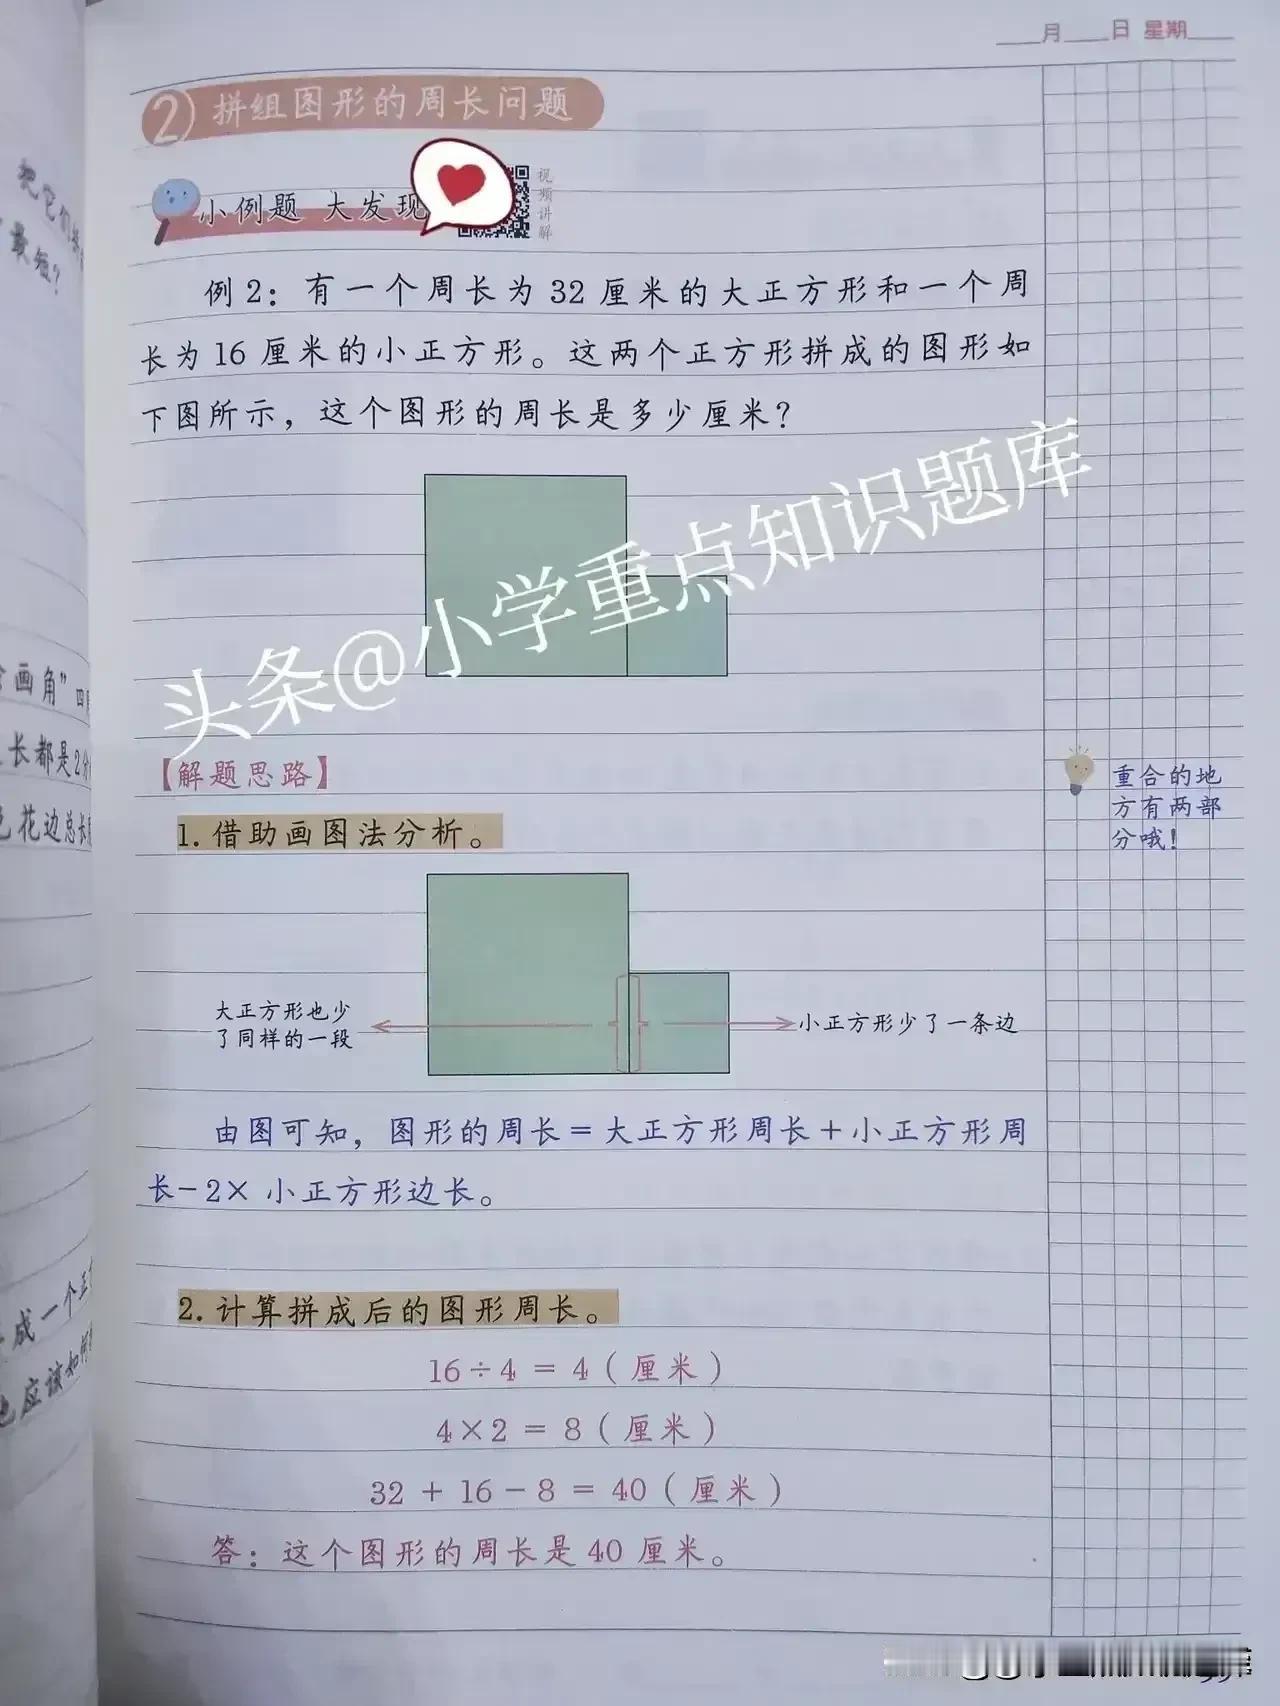 月 日 星期
2 拼组图形的周长问题
小例题 大发现
视频讲解
例2：有一个周长为32厘米的大正方形和一个周
长为16厘米的小正方形。这两个正方形拼成的图形如
下图所示，这个图形的周长是多少厘米？
头条@小学重点知识题库
【解题思路】
重合的地
方有两部
分哦！
1.借助画图法分析。
大正方形也少
了同样的一段
小正方形少了一条边
由图可知，图形的周长=大正方形周长+小正方形周
长-2×小正方形边长。
2.计算拼成后的图形周长。
16÷4=4（厘米）
4×2=8（厘米）
32+16-8=40（厘米）
答：这个图形的周长是40厘米。
把它们
最短？
画角”四
长都是2分
花边总长
成一个正
应该如何